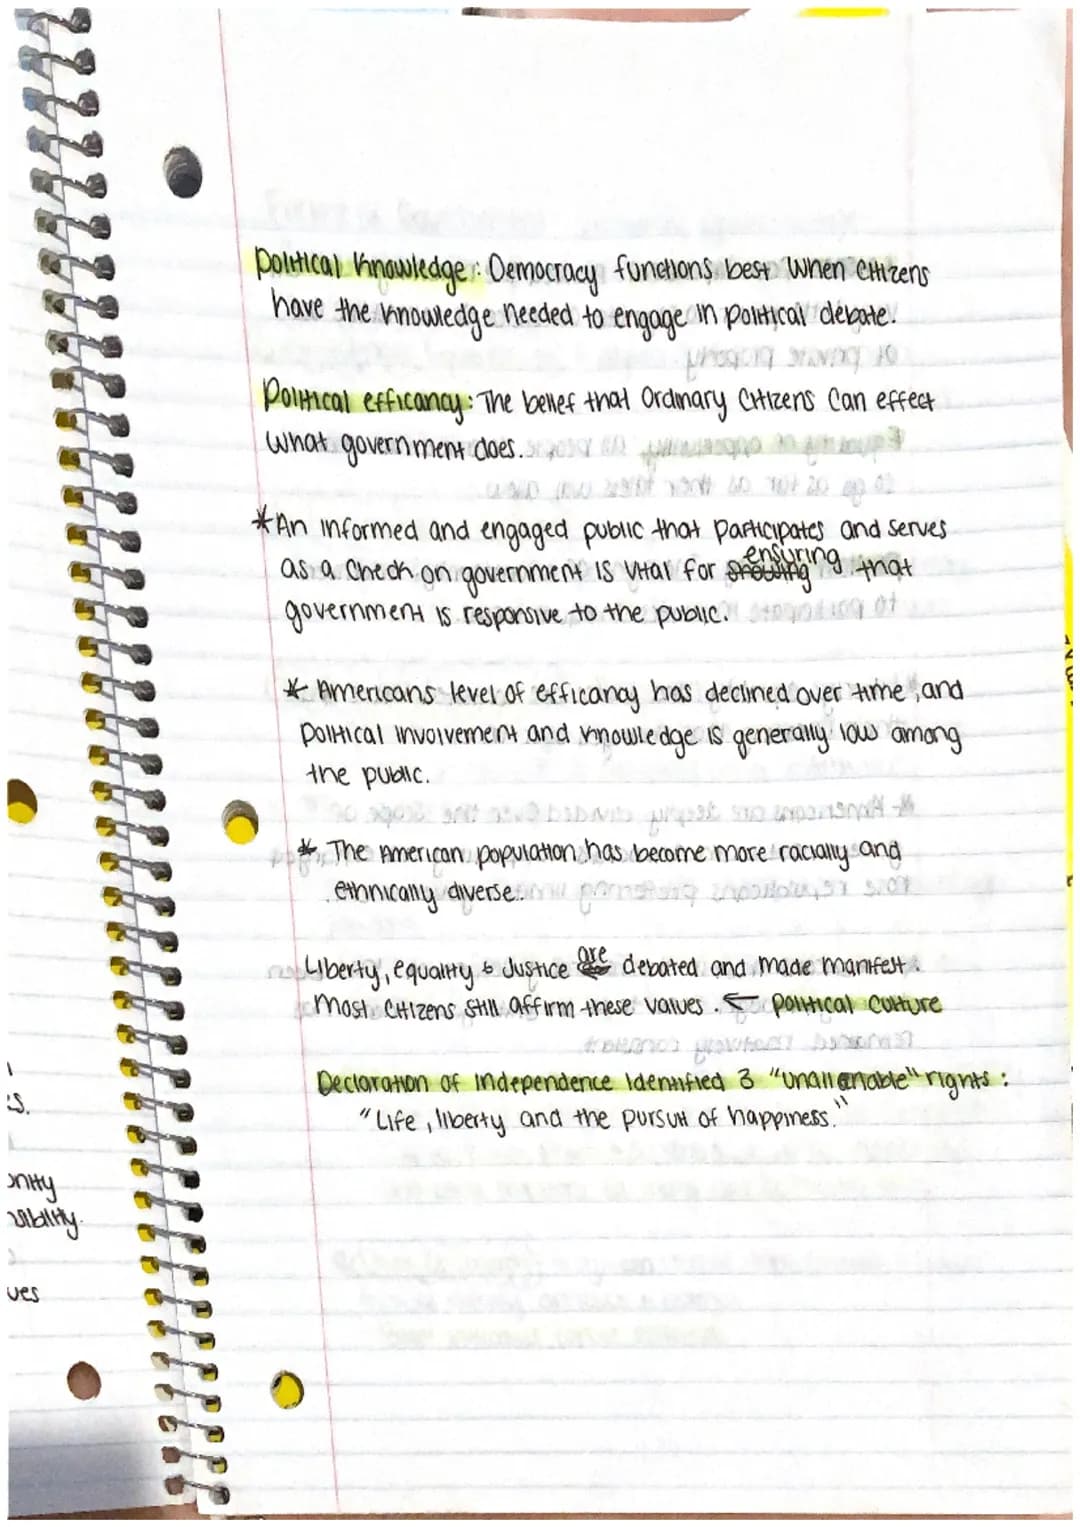 Political Knowledge: Democracy functions best when citizens
have the knowledge needed to engage in political debate.
Political efficancy: The belief that ordinary citizens can effect
what government does.
*An informed and engaged public that participates and serves
ensuring
as a check on government is vital for showing that
government is responsive to the public.
* Americans level of efficancy has declined over time, and
political involvement and knowledge is generally low among
the public.
* The American population has become more racially and
ethnically diverse.
are
Liberty, equality & Justice debated and made manifest.
Most citizens still affirm these values. ← political culture
Declaration of Independence identified 3 "unalienable" rights:
"Life, liberty and the pursuit of happiness."
s.
onity
nsibility.
ues